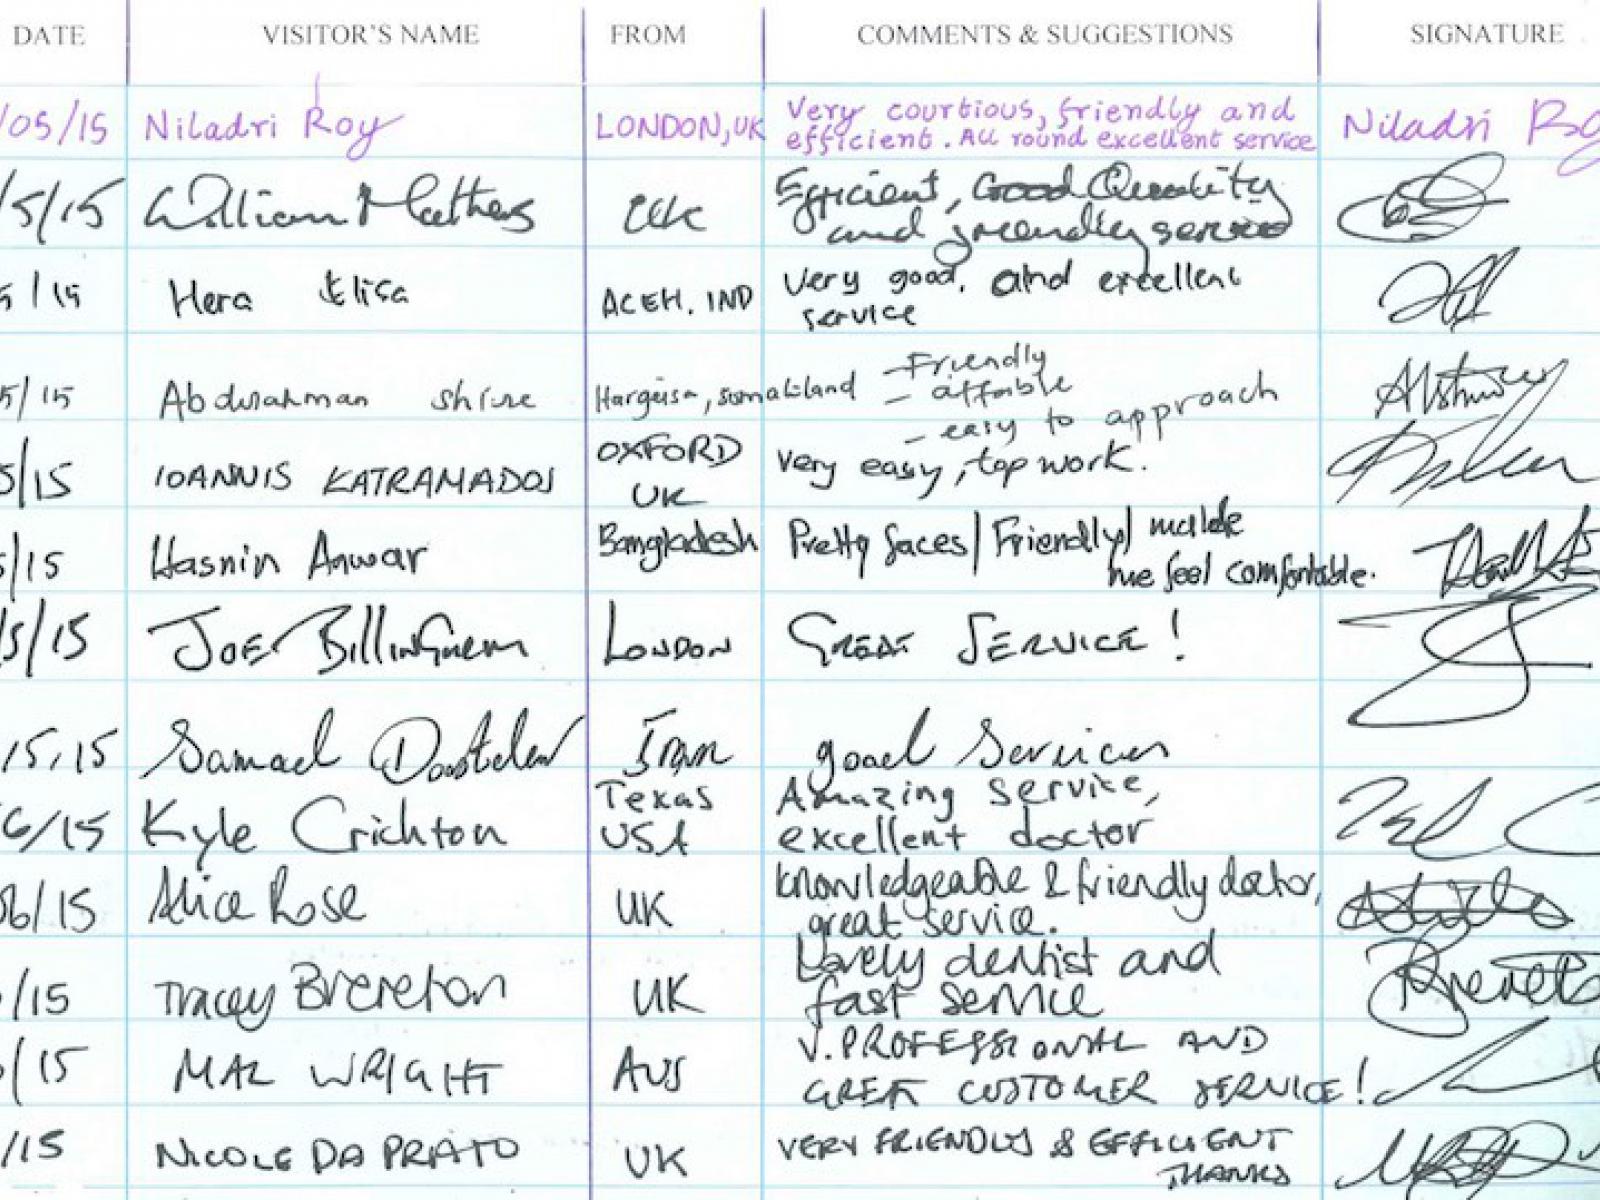 DATE VISITOR'S NAME FROM COMMENTS & SUGGESTIONS SIGNATURE
/05/15 Niladri Roy LONDON, UK Very courtious, friendly and
efficient. All round excellent service Niladri Roy
/5/15 William Mathews UK Efficient, Good Quality
and friendly service
5/15 Hera Elisa ACEH. IND Very good, and excellent
service
5/15 Abdurahman shire Hargeisa, somaliland - Friendly
- affable
- easy to approach
5/15 IOANNIS KATRAMADOS OXFORD
UK very easy, top work.
5/15 Hasnin Anwar Bangladesh Pretty faces / Friendly / made
me feel comfortable.
/5/15 JOE BILLINGHAM LONDON GREAT SERVICE!
/5/15 Iran good Services
6/15 Kyle Crichton Texas
USA Amazing service,
excellent doctor
06/15 Alice Rose UK knowledgeable & friendly doctor,
great service.
/15 Tracey Brereton UK Lovely dentist and
fast service
/15 MAL WRIGHT AUS V. PROFESSIONAL AND
GREAT CUSTOMER SERVICE!
/15 NICOLE DA PRATO UK VERY FRIENDLY & EFFICIENT
THANKS